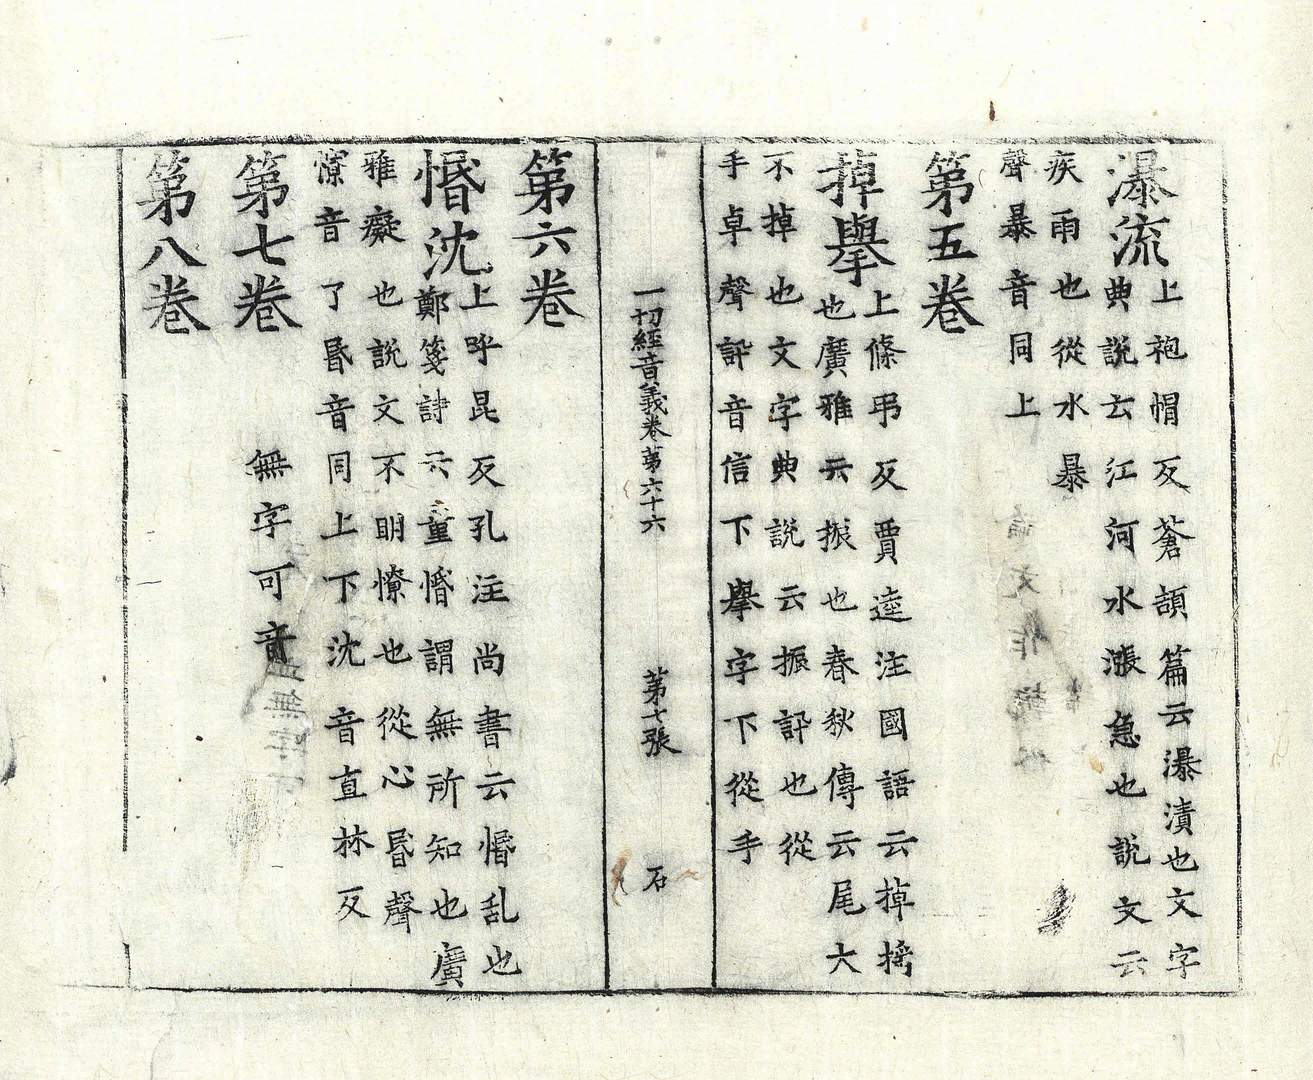 瀑流
上袍帽反蒼頡篇云瀑漬也文字
典說云江河水漲急也說文云
疾雨也從水暴
聲暴音同上
第五卷
掉擧
上條弔反賈逵注國語云掉搖
也廣雅云振也春秋傳云尾大
不掉也文字典說云振訃也從
手卓聲訃音信下擧字下從手
一切經音義卷第六十六 第七張 石
第六卷
惛沈
上呼昆反孔注尚書云惛乱也
鄭箋詩云重惛謂無所知也廣
雅癡也說文不明憭也從心昬聲
憭音了昬音同上下沈音直林反
第七卷 無字可音
第八卷